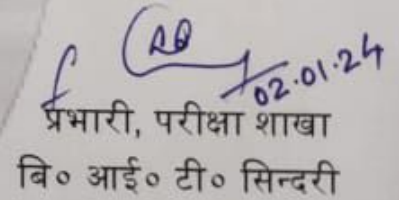 02.01.24
प्रभारी, परीक्षा शाखा
बि० आई० टी० सिन्दरी